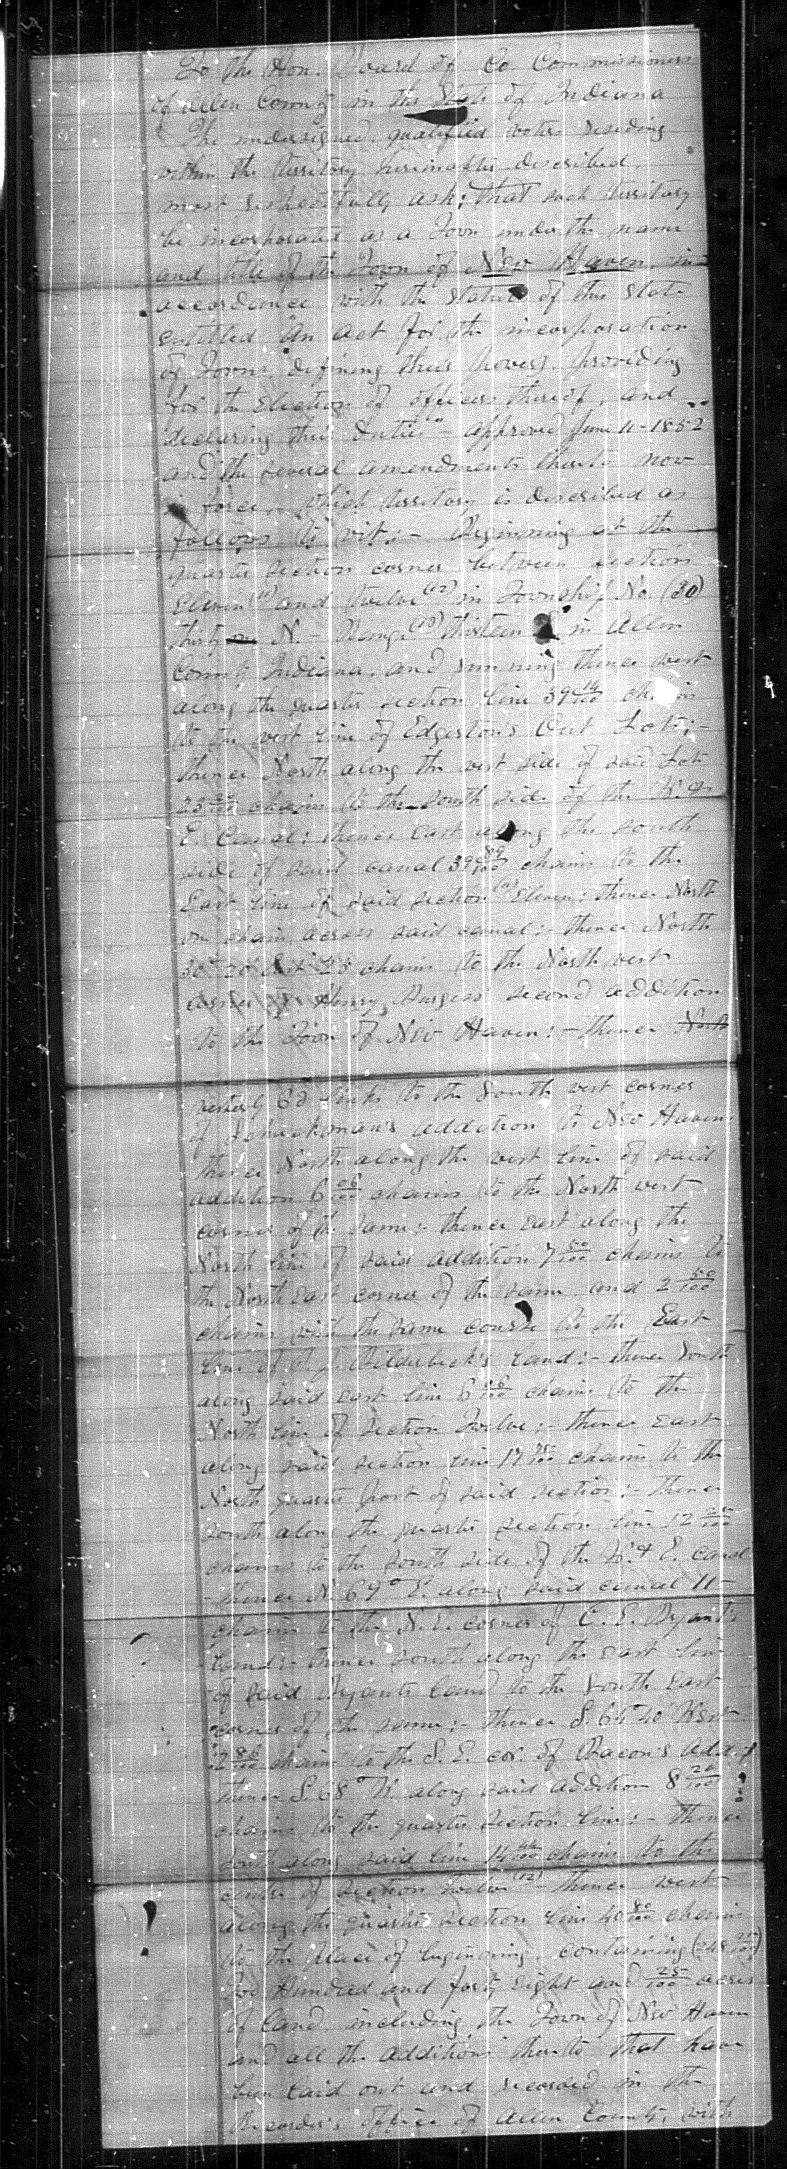 To the Hon. Board of Co Commissioners
of Allen County in the State of Indiana
The undersigned, qualified voters residing
within the territory hereinafter described,
most respectfully ask; That such territory
be incorporated as a Town under the name
and title of the Town of New Haven, in
accordance with the Statute of this State
entitled "An act for the incorporation
of Towns, defining their powers, providing
for the election of officers thereof, and
declaring their duties" - approved June 11 - 1852
and the several amendments thereto now
in force, which territory is described as
follows, to wit; - Beginning at the
quarter section corner between sections
Eleven (11) and twelve (12) in Township No (30)
thirty N. - Range (13) thirteen in Allen
County Indiana, and running thence west
along the quarter section line 39 chains
to the west line of Edgerton's Out Lots; -
thence North along the west side of said Lot
chains to the south side of the W. &
E. Canal: thence East along the south
side of said canal 39 89/100 chains to the
East line of said section (11) Eleven: thence North
on chain across said canal: - thence North
chains to the North west
corner of Henry Burgess' second addition
to the Town of New Haven: - thence North
westerly 60 links to the South west corner
of addition to New Haven
thence North along the west line of said
addition 6 06/100 chains to the North west
corner of the same: thence east along the
North line of said addition 7 50/100 chains to
the North east corner of the same and 2 50/100
chains with the same course to the East
line of Bilderback's land: - thence south
along said east line 6 06/100 chains to the
North line of section Twelve: - thence east
along said section line 17 chains to the
North quarter post of said section: - thence
south along the quarter section line 12
chains to the south side of the W. & E. canal
- thence N. 69° E. along said canal 11 -
chains to the N. E. corner of C. E. Bryant's
land: - thence south along the east line
of said Bryants land to the south east
corner of the same: - thence S. West
2 86/100 chains to the S. E. cor. of Bacon's Add.
thence S. 68° W. along said addition 8 20/100
chains to the quarter section line: - thence
south along said line 14 44/100 chains to the
centre of section twelve (12) - thence west
along the quarter section line 40 80/100 chains
to the place of beginning, containing (248 25/100)
Two Hundred and forty eight and 25/100 acres
of land including the Town of New Haven
and all the additions thereto that have
been laid out and recorded in the
Recorder's office of Allen County, with